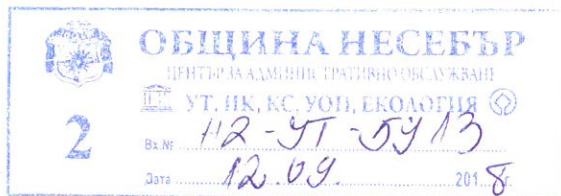 ОБЩИНА НЕСЕБЪР
ЦЕНТЪР ЗА АДМИНИСТРАТИВНО ОБСЛУЖВАНЕ
УТ, ИК, КС, УОП, ЕКОЛОГИЯ
2
Вх.№ Н2-УТ-5913
Дата 12.09. 2018 г.